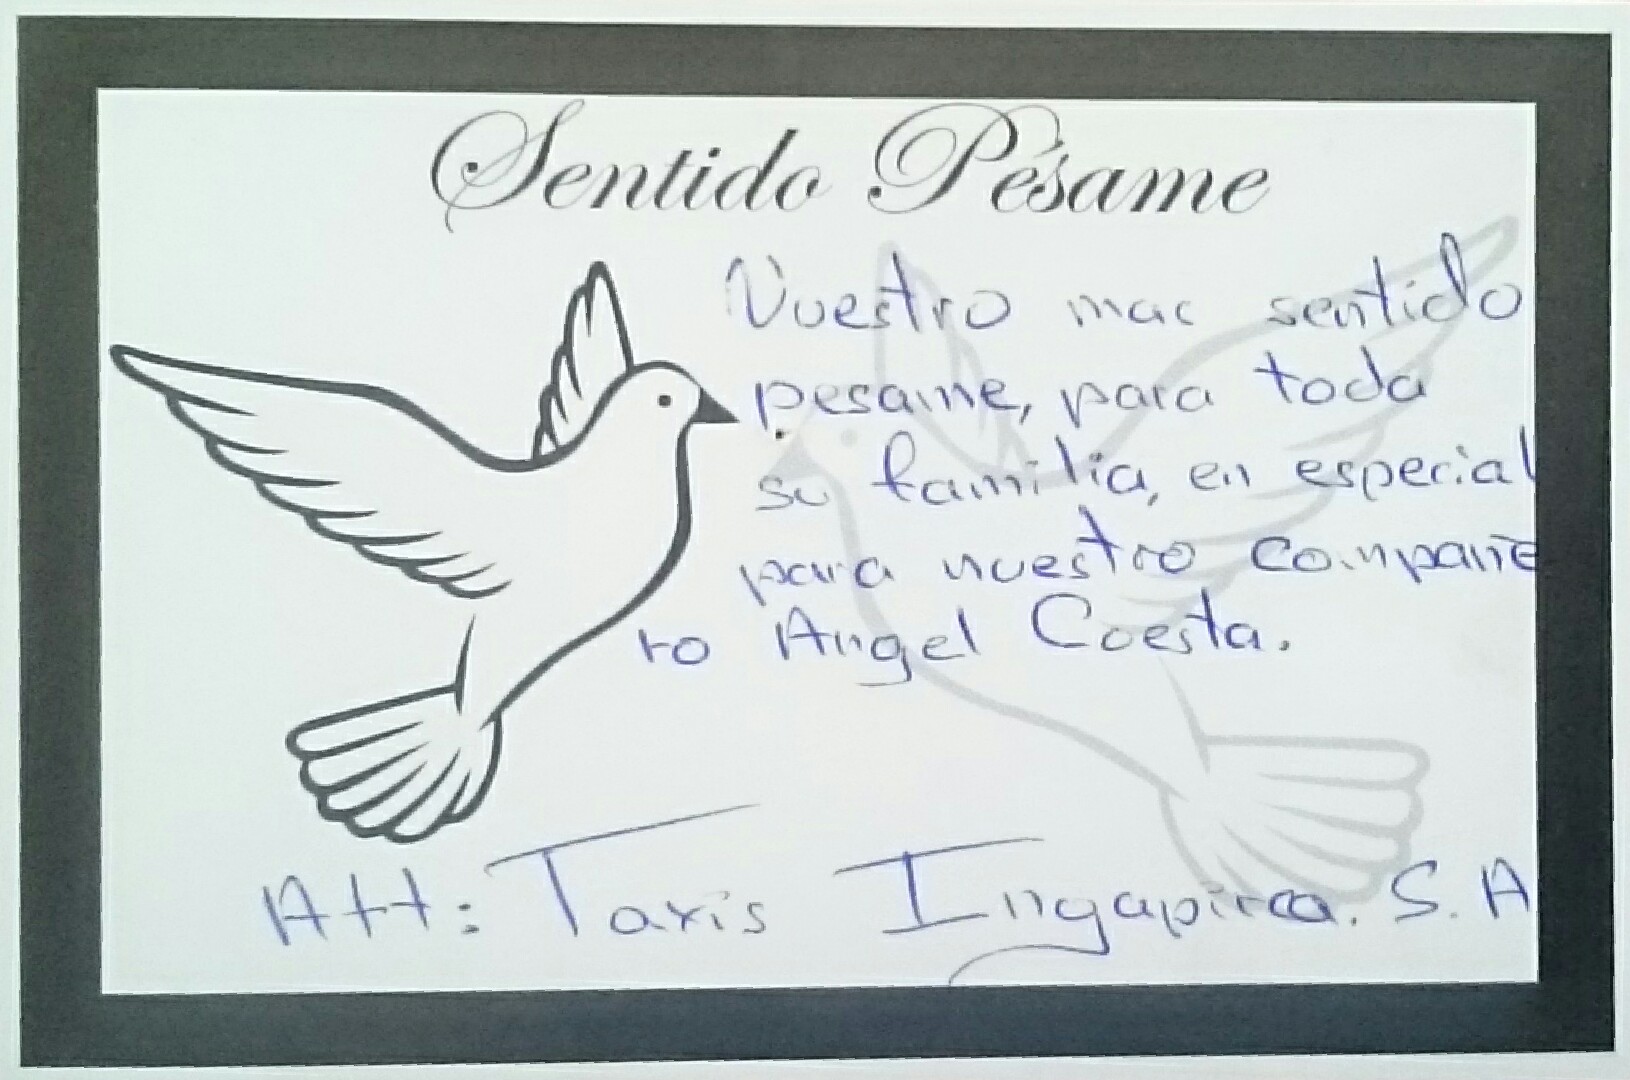 Sentido Pésame
Nuestro mac sentido
pesame, para toda
su familia, en especial
para nuestro compañe
ro Angel Coesta.
Att: Taxis Ingapirca. S. A